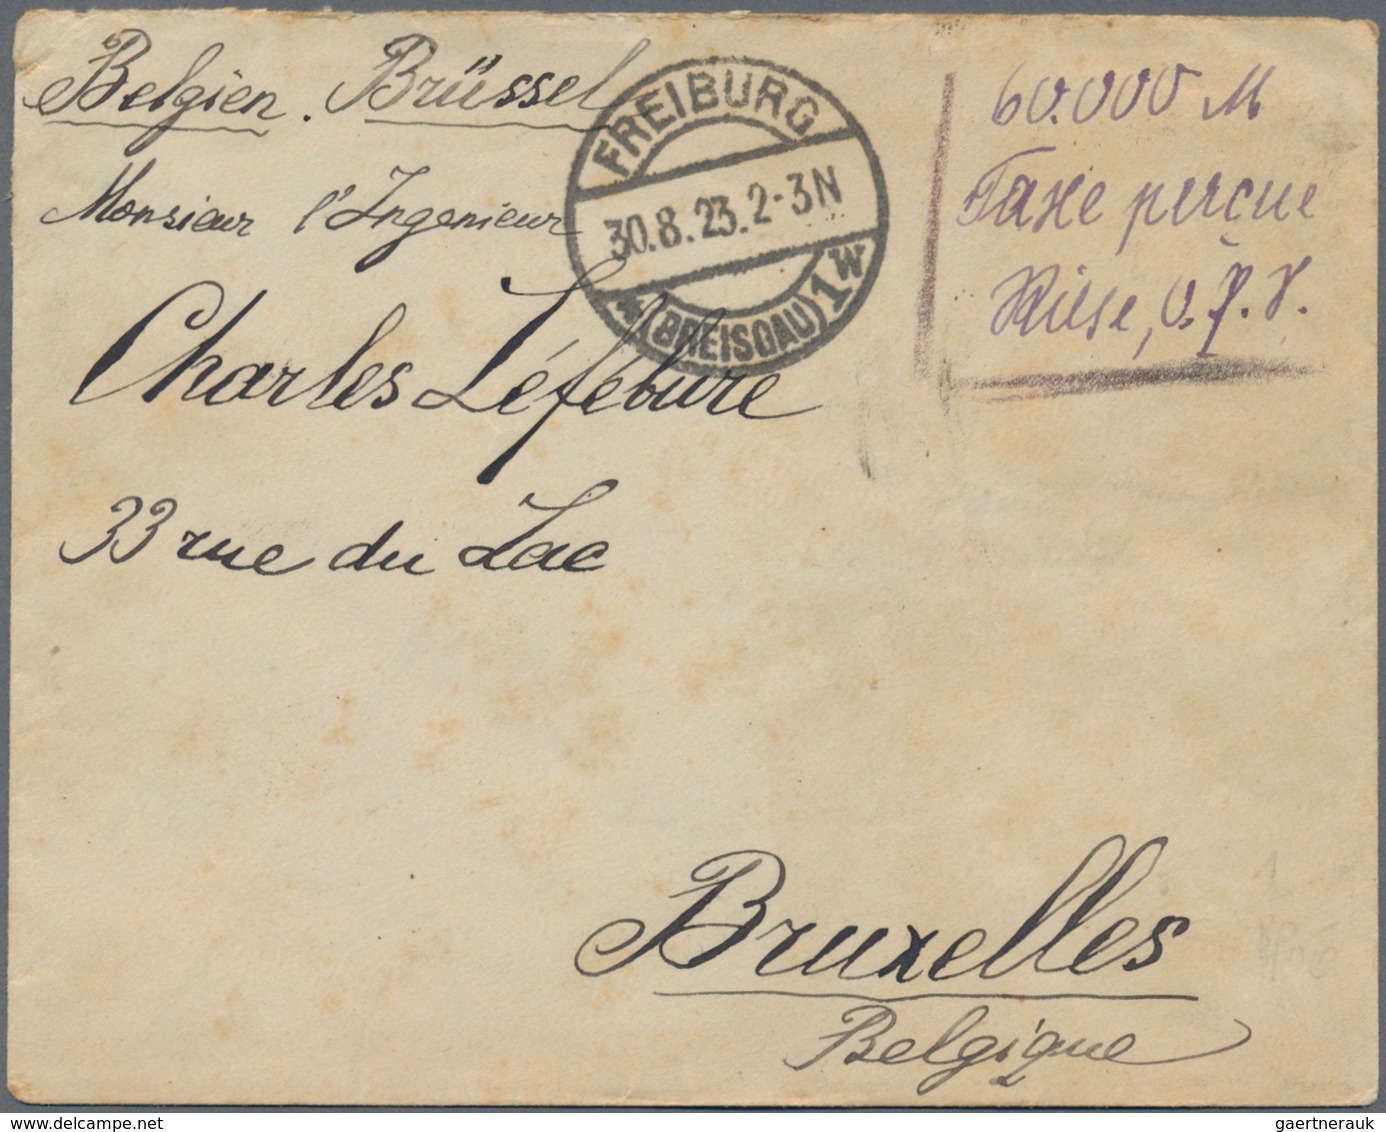 Belgien. Brüssel
Monsieur l'Ingenieur
Charles Léfebure
33 rue du Lac
Bruxelles
Belgique
FREIBURG
30.8.23.2-3N
* (BREISGAU) 1 W
60.000 M
Taxe perçue
O.P.S.
gaertnerauk